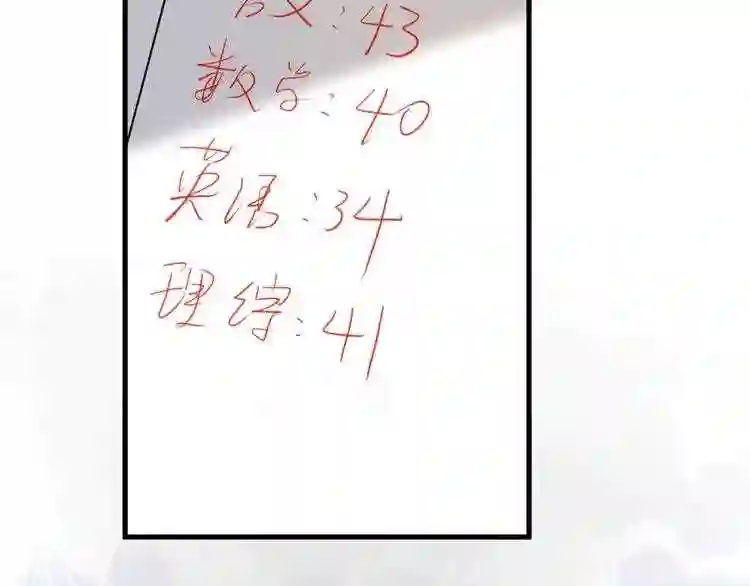 语文:43
数学:40
英语:34
理综:41